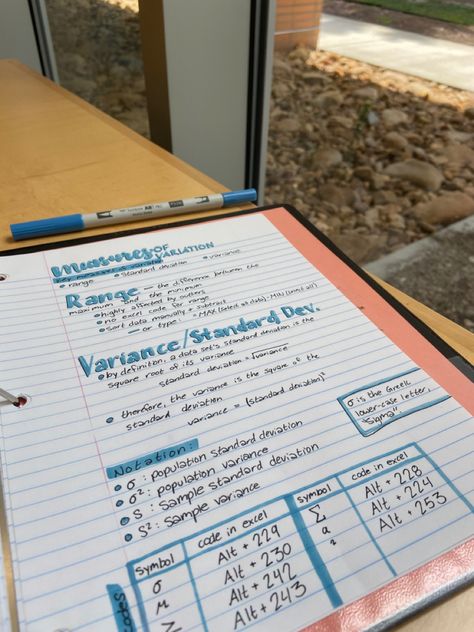 Measures OF VARIATION
key measures of variation
• range • standard deviation • variance
Range — the difference between the
maximum and the minimum
• highly affected by outliers
• no excel code for range
• sort data manually + subtract
— or type: "=MAX(select all data)-MIN(select all)
Variance/Standard Dev.
• by definition, a data set's standard deviation is the
square root of its variance
standard deviation = √variance
• therefore, the variance is the square of the
standard deviation
variance = (standard deviation)²
σ is the Greek
lower-case letter,
"sigma"
Notation:
• σ: population standard deviation
• σ²: population variance
• S: sample standard deviation
• S²: sample variance
symbol code in excel symbol code in excel
σ Alt + 229 Σ Alt + 228
μ Alt + 230 Alt + 224
≥ Alt + 242 Alt + 253
Alt + 243
codes